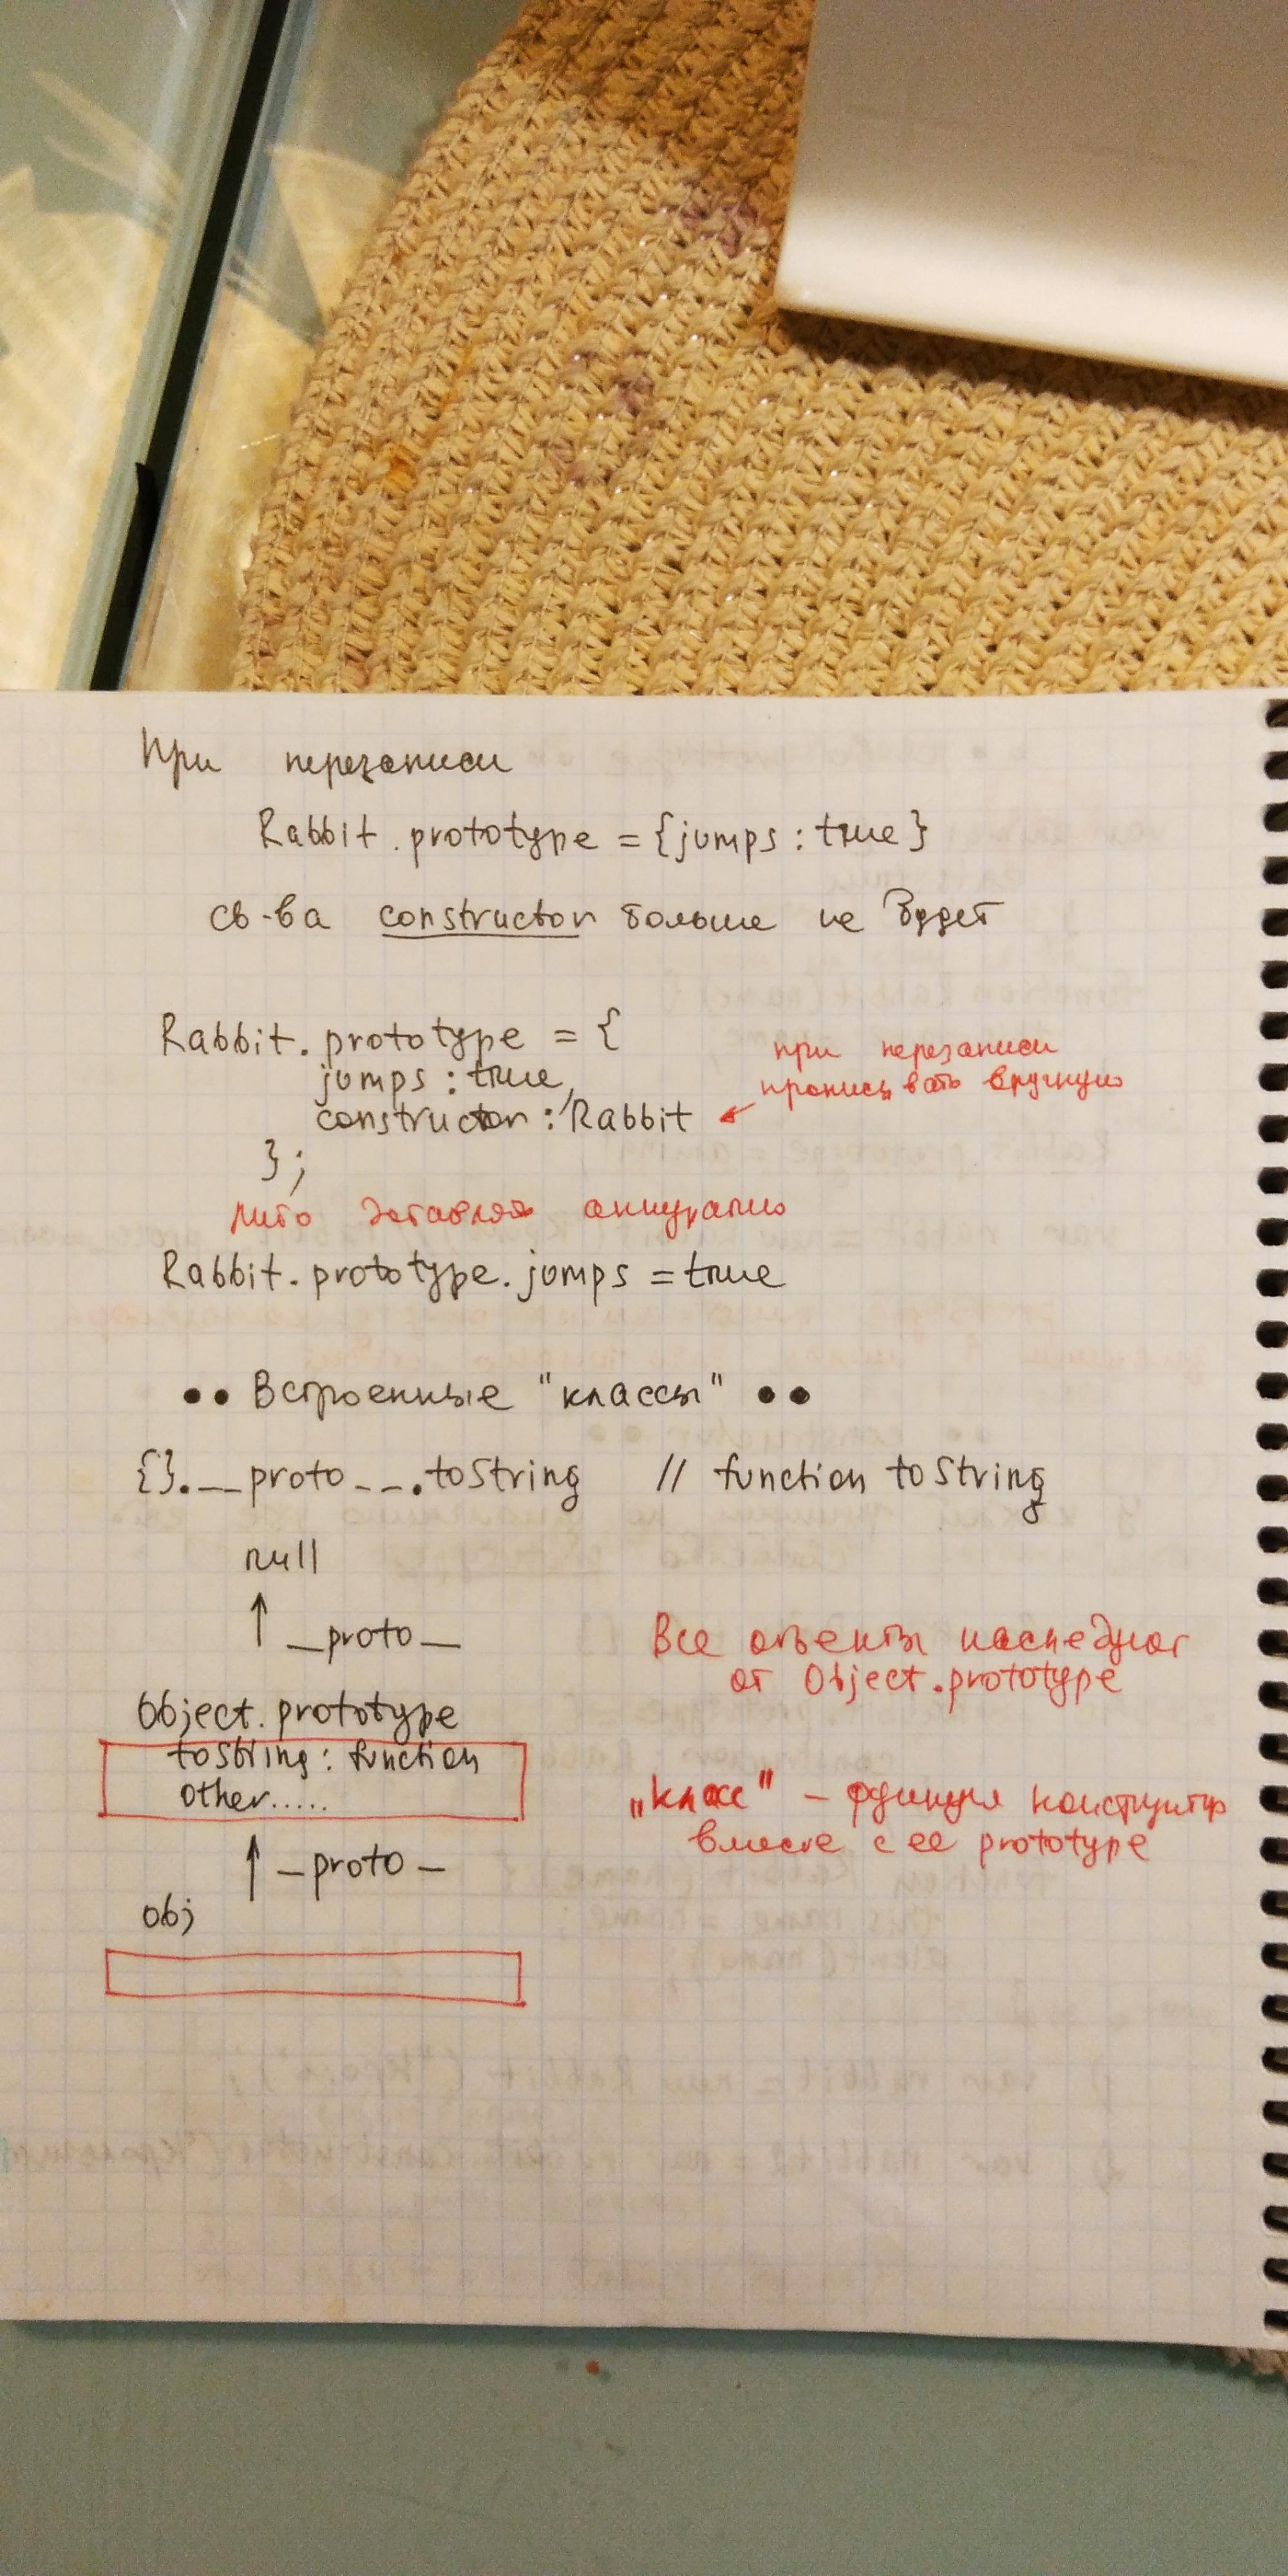 При перезаписи
Rabbit.prototype = {jumps : true}
св-ва constructor больше не будет
Rabbit.prototype = {
jumps : true,
constructor : Rabbit
при перезаписи
прописывать вручную
};
либо аккуратно
Rabbit.prototype.jumps = true
•• Встроенные "классы" ••
{}.__proto__.toString // function toString
null
↑ _proto_
Object.prototype
toString : function
other.....
↑ _proto_
obj
Все объекты наследуют
от Object.prototype
„класс" – функция конструктор
вместе с ее prototype